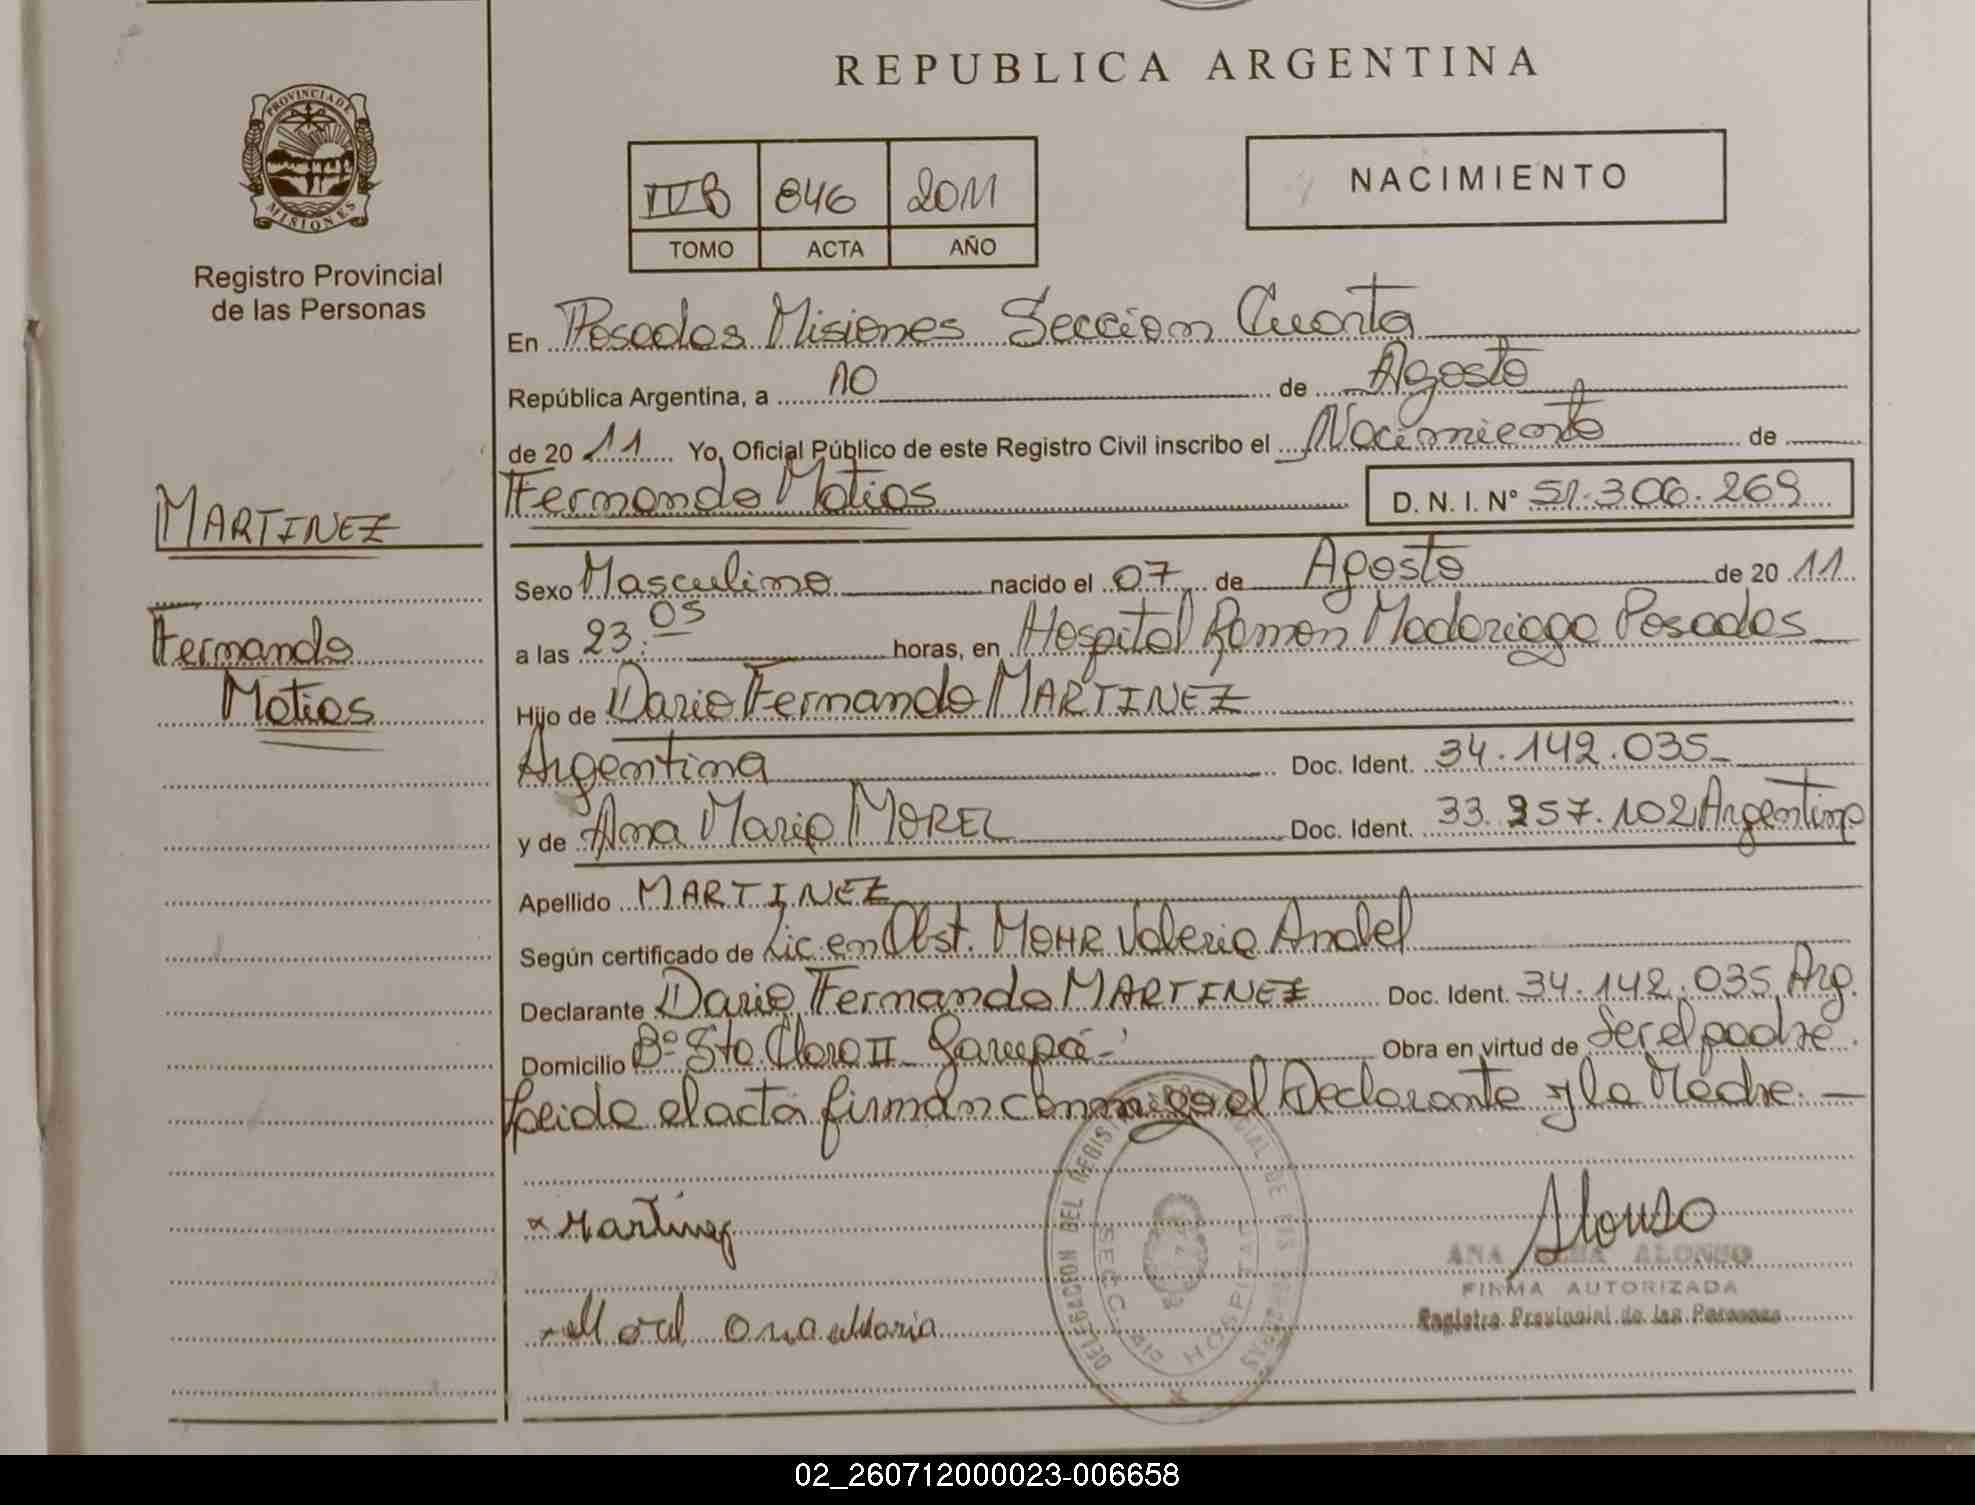 REPUBLICA ARGENTINA
PROVINCIA DE
MISIONES
Registro Provincial
de las Personas
846 2011
TOMO ACTA AÑO
NACIMIENTO
En Posadas Misiones Sección Cuarta
República Argentina, a 10 de Agosto
de 20 11 Yo, Oficial Público de este Registro Civil inscribo el Nacimiento de
Fernando Matias D. N. I. Nº 51.306.269
MARTINEZ
Fernando
Matias
Sexo Masculino nacido el 07 de Agosto de 20 11
a las 23:05 horas, en Hospital Ramon Madariaga Posadas
Hijo de Dario Fernando MARTINEZ
Argentina Doc. Ident. 34.142.035
y de Ana Maria MOREL Doc. Ident. 33.257.102 Argentina
Apellido MARTINEZ
Según certificado de Lic. en Obst. MOHR Valeria Anabel
Declarante Dario Fernando MARTINEZ Doc. Ident. 34.142.035, Arg.
Domicilio Bº Sta. Clara II - Garupá - Obra en virtud de Ser el padre.
Leida el acta firman conmigo el Declarante y la Madre. —
Martinez
Morel Ana Maria
DELEGACION DEL REGISTRO PROVINCIAL DE LAS PERSONAS
SECC. HOSPITAL
Alonso
ANA ALONSO
FIRMA AUTORIZADA
Registro Provincial de las Personas
02_260712000023-006658